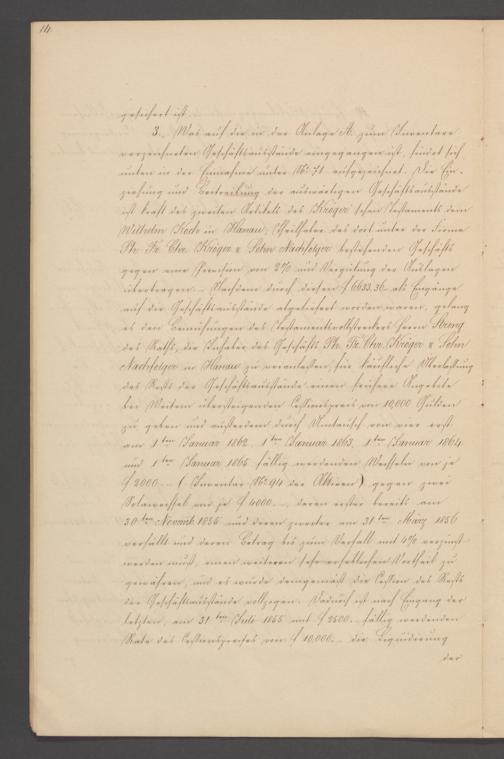 14.
gesichert ist.
3. Was auf die in der Anlage A. zum Inventare
verzeichneten Geschäftsausstände eingegangen ist, findet sich
unten in der Einnahme unter No 71 aufgezeichnet. Die Ein-
ziehung und Beitreibung der auswärtigen Geschäftsausstände
ist kraft des zweiten Artikels des Krieger'schen Testaments dem
Wilhelm Koch in Hanau, Theilhaber des dort unter der Firma
Ph. Fr. Chr. Krieger & Sohn Nachfolger bestehenden Geschäfts
gegen eine Provision von 2% und Vergütung der Auslagen
übertragen. Nachdem durch diesen f 6633.36. als Eingänge
auf die Geschäftsausstände abgeliefert worden waren, gelang
es den Bemühungen des Testamentsvollstreckers Herrn
des Raths, die Inhaber des Geschäfts Ph. Fr. Chr. Krieger & Sohn
Nachfolger in Hanau zu veranlassen, für käufliche Überlassung
des Rests der Geschäftsausstände einen frühere Angebote
bei Weitem übersteigenden Cessionspreis von 10,000 Gulden
zu geben und ausserdem durch Umtausch von vier erst
am 1ten Januar 1862, 1ten Januar 1863, 1ten Januar 1864
und 1ten Januar 1865 fällig werdenden Wechseln von je
f 2000.- (Inventar No 94 der Aktiven) gegen zwei
Solawechsel von je f 4000.-, deren erster bereits am
30ten Novemb. 1855 und deren zweiter am 31ten März 1856
verfällt und deren Betrag bis zum Verfall mit 4% verzinst
werden muß, einen weiteren sehr erheblichen Vortheil zu
gewähren, und es wurde demgemäß die Cession des Rests
der Geschäftsausstände vollzogen. Dadurch ist nach Eingang der
letzten, am 31ten Juli 1855 mit f 2500.- fällig werdenden
Rate des Cessionspreises von f 10,000.- die Liquidirung
der